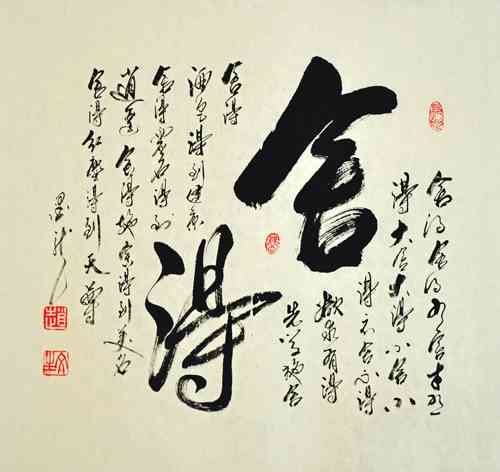 舍得
舍得舍得有舍才能
得大舍大得小舍小
得不舍不得
欲求有得
先学施舍
舍得
酒色得到健康
舍得虚名得到
逍遥舍得施得到美名
舍得红尘得到天尊